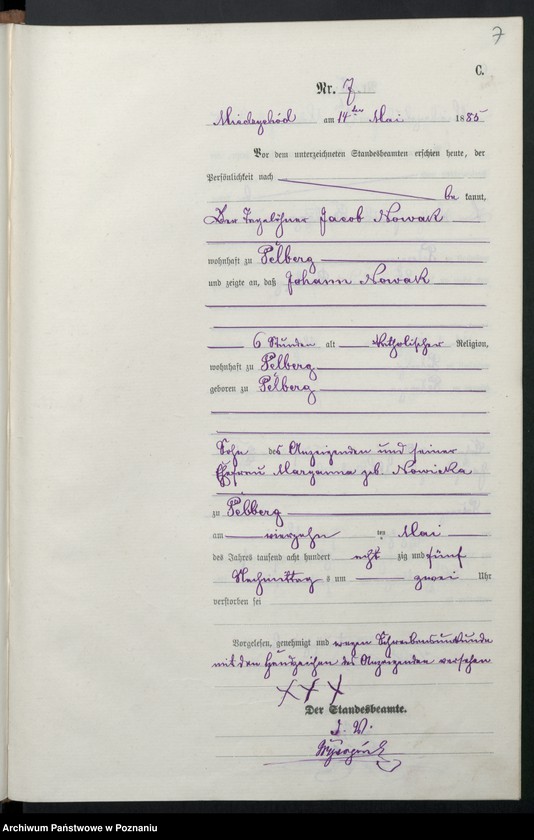 7
C.
Nr. 7
Miedzychód am 14ten Mai 1885
Vor dem unterzeichneten Standesbeamten erschien heute, der
Persönlichkeit nach
be kannt,
Der Tagelöhner Jacob Nowak
wohnhaft zu Pelberg
und zeigte an, daß Johann Nowak
6 Stunden alt katholischer Religion,
wohnhaft zu Pelberg
geboren zu Pelberg
Sohn des Anzeigenden und seiner
Ehefrau Maryanna geb. Nowicka
zu Pelberg
am vierzehn ten Mai
des Jahres tausend acht hundert acht zig und fünf
Nachmittag s um zwei Uhr
verstorben sei
Vorgelesen, genehmigt und wegen Schreibensunkunde
mit den Handzeichen des Anzeigenden versehen
XXX
Der Standesbeamte.
I. V.
Archiwum Państwowe w Poznaniu